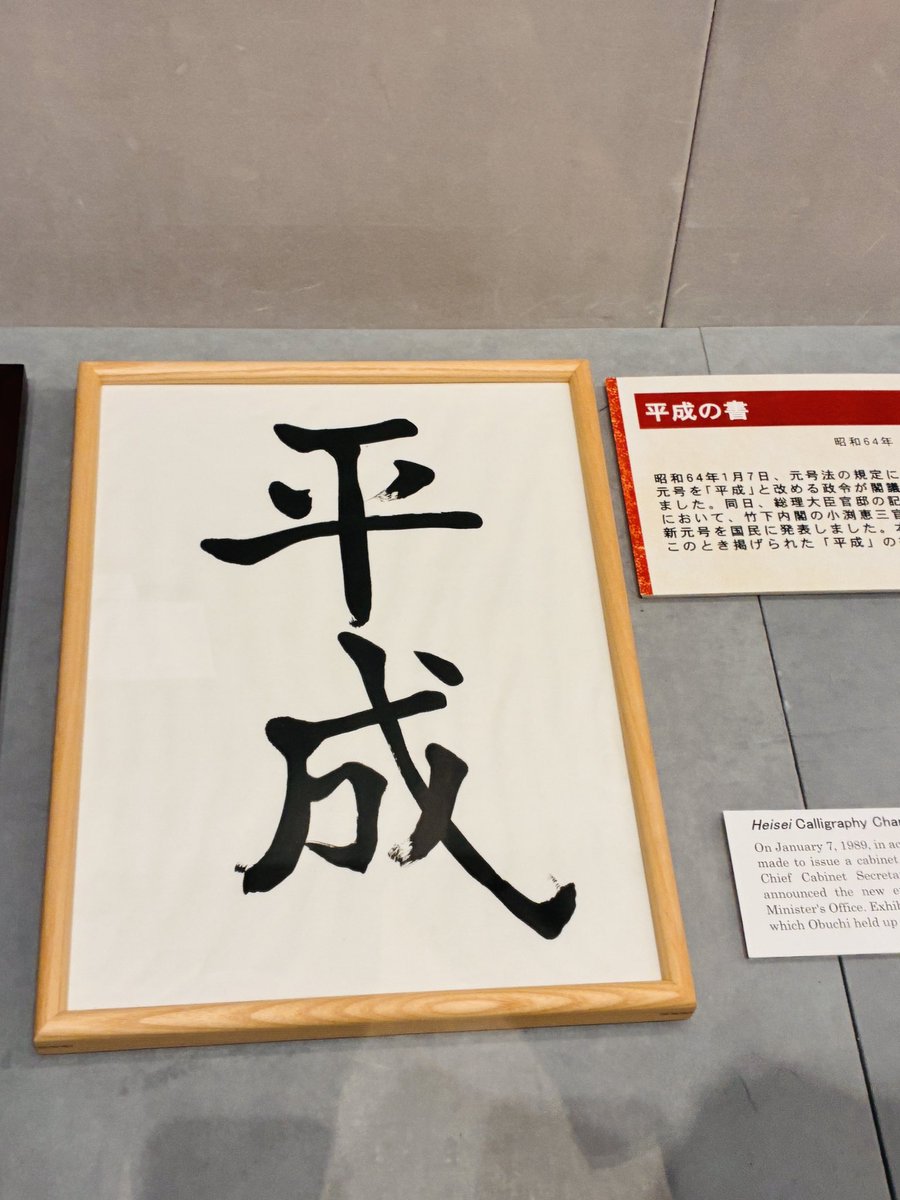 平成
平成の書
昭和64年
昭和64年1月7日、元号法の規定に
元号を「平成」と改める政令が閣議
ました。同日、総理大臣官邸の記
において、竹下内閣の小渕恵三官
新元号を国民に発表しました。
このとき掲げられた「平成」の
Heisei Calligraphy
On January 7, 1989, in
made to issue a cabinet
Chief Cabinet
announced the new
Minister's Office.
which Obuchi held up